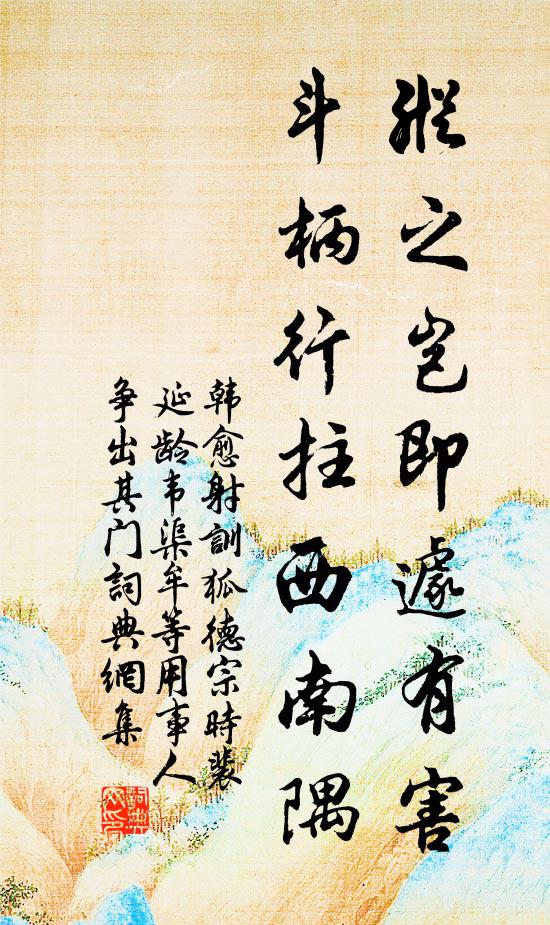 縱之豈即遽有害
斗柄行拄西南隅
韩愈射訓狐德宗時裴
延龄韦渠牟等用事人
争出其门詞典網集